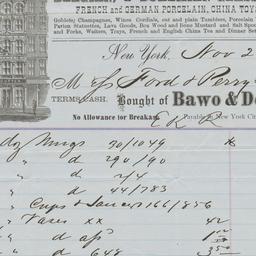 FRENCH AND GERMAN PORCELAIN, CHINA TOY
Goblets; Champagnes, Wines Cordials, cut and plain Tumblers, Porcelain
Parian Statuettes, Lava Goods, Box Wood and Bone Mustard and Salt Spoo
and Forks, Waiters, Trays, French and English China Tea and Dinner Se
New York, Nov 2
Mess Ford & Perry
TERMS CASH. Bought of BAWO & DO
No Allowance for Breakage. Payable in New York Ci
dz Mugs 20/1049
" d 290/90
" d 2/4
" d 44/783
" Cups & Saucers 166/856
" Vases xx 42
" d
" d 648